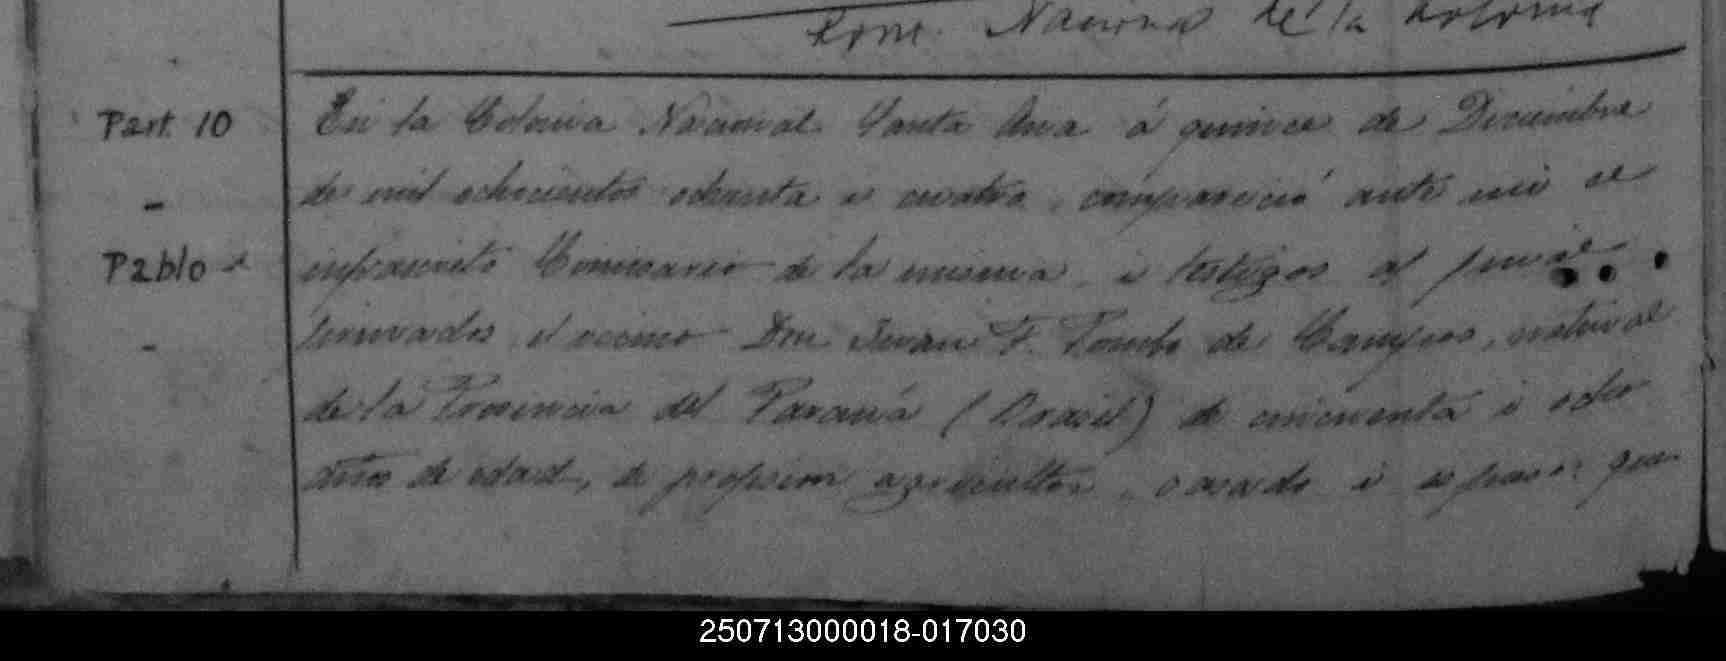 Com. Nacional de la Colonia
Part. 10
En la Colonia Nacional Santa Ana á quince de Diciembre
de mil ochocientos ochenta i cuatro, compareció ante mi el
Pablo
infrascrito Comisario de la misma i testigos al final
firmados, el vecino Don Juan F. de Campos, natural
de la Provincia del Paraná (Brasil) de cincuenta i ocho
años de edad, de profesion agricultor, casado i espuso: que
250713000018-017030